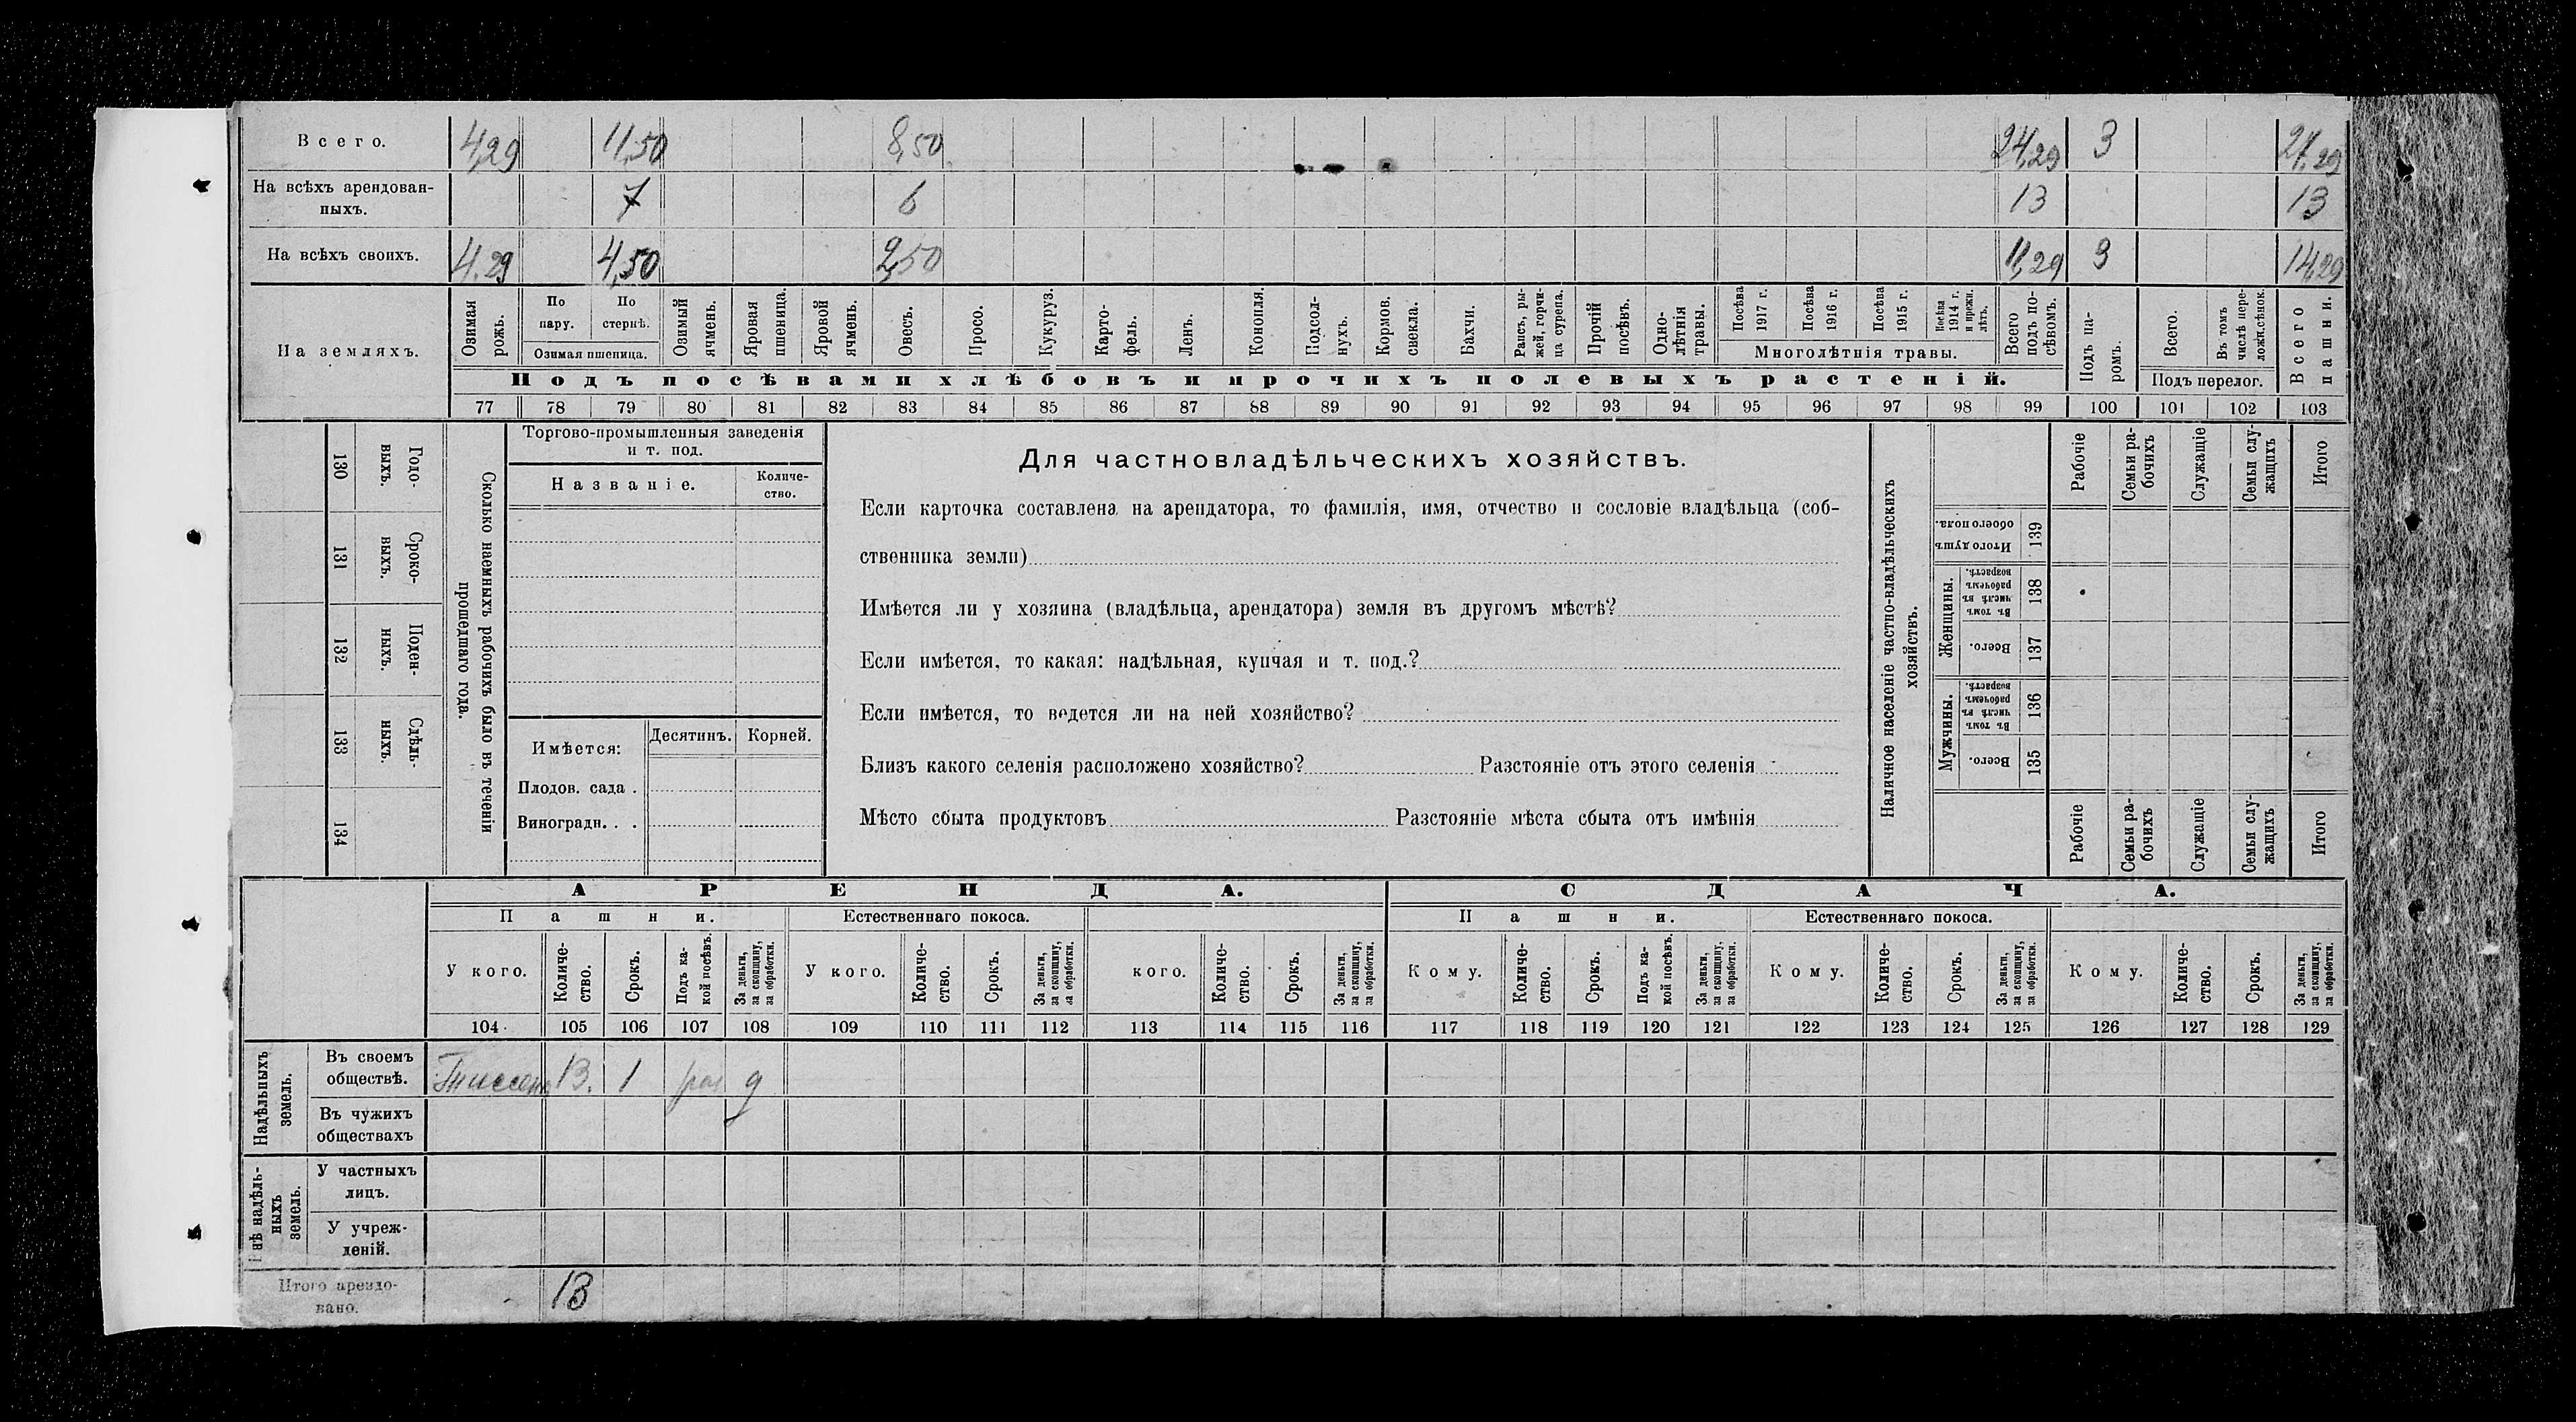 Всего. 4,29 11,50 8,50 24,29 3 27,29
На всѣхъ арендован- 7 6 13 13
ныхъ.
На всѣхъ своихъ. 4,29 4,50 2,50 11,29 3 14,29
На земляхъ.
Озимая рожь.
По пару.
По стернѣ.
Озимая пшеница.
Озимый ячмень.
Яровая пшеница.
Яровой ячмень.
Овесъ.
Просо.
Кукуруз.
Карто-
фель.
Ленъ.
Конопля.
Подсол-
нухъ.
Кормов. свекла.
Бахчи.
Рапсъ, ры-
жей, горчи-
ца сурепа.
Прочій посѣвъ.
Одно-
лѣтнія травы.
Посѣва 1917 г.
Посѣва 1916 г.
Посѣва 1915 г.
Посѣва 1914 г. и прежн. лѣтъ.
Многолѣтнія травы.
Всего подъ по-
сѣвомъ.
Подъ па-
ромъ.
Всего.
Въ томъ числѣ пере-
ложн.сѣнок.
Подъ перелог.
Всего пашни.
Подъ посѣвами хлѣбовъ и прочихъ полевыхъ растеній.
77 78 79 80 81 82 83 84 85 86 87 88 89 90 91 92 93 94 95 96 97 98 99 100 101 102 103
130 Годо-
выхъ.
131 Сроко-
выхъ.
132 Поден-
ныхъ.
133 Сдѣль-
ныхъ.
134
Сколько наемныхъ рабочихъ было въ теченіи
прошедшаго года.
Торгово-промышленныя заведенія
и т. под.
Названіе.
Количе-
ство.
Имѣется:
Десятинъ. Корней.
Плодов. сада .
Виноградн. . .
Для частновладѣльческихъ хозяйствъ.
Если карточка составлена на арендатора, то фамилія, имя, отчество и сословіе владѣльца (соб-
ственника земли)
Имѣется ли у хозяина (владѣльца, арендатора) земля въ другомъ мѣстѣ?
Если имѣется, то какая: надѣльная, купчая и т. под.?
Если имѣется, то ведется ли на ней хозяйство?
Близъ какого селенія расположено хозяйство? Разстояніе отъ этого селенія
Мѣсто сбыта продуктовъ Разстояніе мѣста сбыта отъ имѣнія
Наличное населеніе частно-владѣльческихъ
хозяйствъ.
Рабочіе
Семьи ра-
бочихъ
Служащіе
Семьи слу-
жащихъ
Итого
Итого душъ обоего пола. 139
Женщины.
Въ томъ числѣ въ рабочемъ возрастѣ. 138
Всего. 137
Мужчины.
Въ томъ числѣ въ рабочемъ возрастѣ. 136
Всего. 135
Рабочіе
Семьи ра-
бочихъ
Служащіе
Семьи слу-
жащихъ
Итого
АРЕНДА. СДАЧА.
Пашни. Естественнаго покоса. Пашни. Естественнаго покоса.
У кого.
Количе-
ство.
Срокъ.
Подъ ка-
кой посѣвъ.
За деньги,
за скопщину,
за обработки.
У кого.
Количе-
ство.
Срокъ.
За деньги,
за скопщину,
за обработки.
кого.
Количе-
ство.
Срокъ.
За деньги,
за скопщину,
за обработки.
Кому.
Количе-
ство.
Срокъ.
Подъ ка-
кой посѣвъ.
За деньги,
за скопщину,
за обработки.
Кому.
Количе-
ство.
Срокъ.
За деньги,
за скопщину,
за обработки.
Кому.
Количе-
ство.
Срокъ.
За деньги,
за скопщину,
за обработки.
104 105 106 107 108 109 110 111 112 113 114 115 116 117 118 119 120 121 122 123 124 125 126 127 128 129
Надѣльныхъ
земель.
Въ своемъ
обществѣ. 13. 1 д
Въ чужихъ
обществахъ
нѣ надѣль-
ныхъ
земель.
У частныхъ
лицъ.
У учреж-
деній.
Итого арендо-
вано. 13